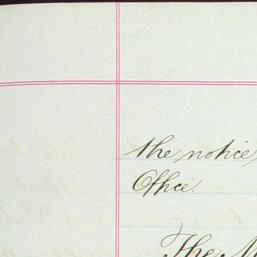 the notice
Office.
The M